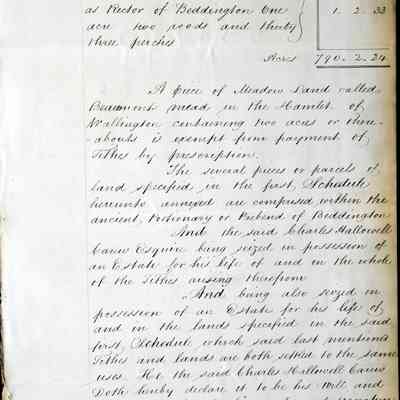 as Rector of Beddington One
acre two roods and thirty
three perches
1. 2. 33
Acres 790. 2. 24
A piece of Meadow Land called
Beaumont mead in the Hamlet of
Wallington containing two acres or there-
-abouts is exempt from payment of
Tithes by prescription.
The several pieces or parcels of
Land specified in the first Schedule
hereunto annexed are comprised within the
ancient Portionary or Prebend of Beddington
And the said Charles Hallowell
Carew Esquire being seized in possession of
an Estate for his life of and in the whole
of the Tithes arising therefrom
And being also seized in
possession of an Estate for his life of
and in the lands specified in the said
first Schedule which said last mentioned
Tithes and lands are both settled to the same
uses. He the said Charles Hallowell Carew
Doth hereby declare it to be his will and